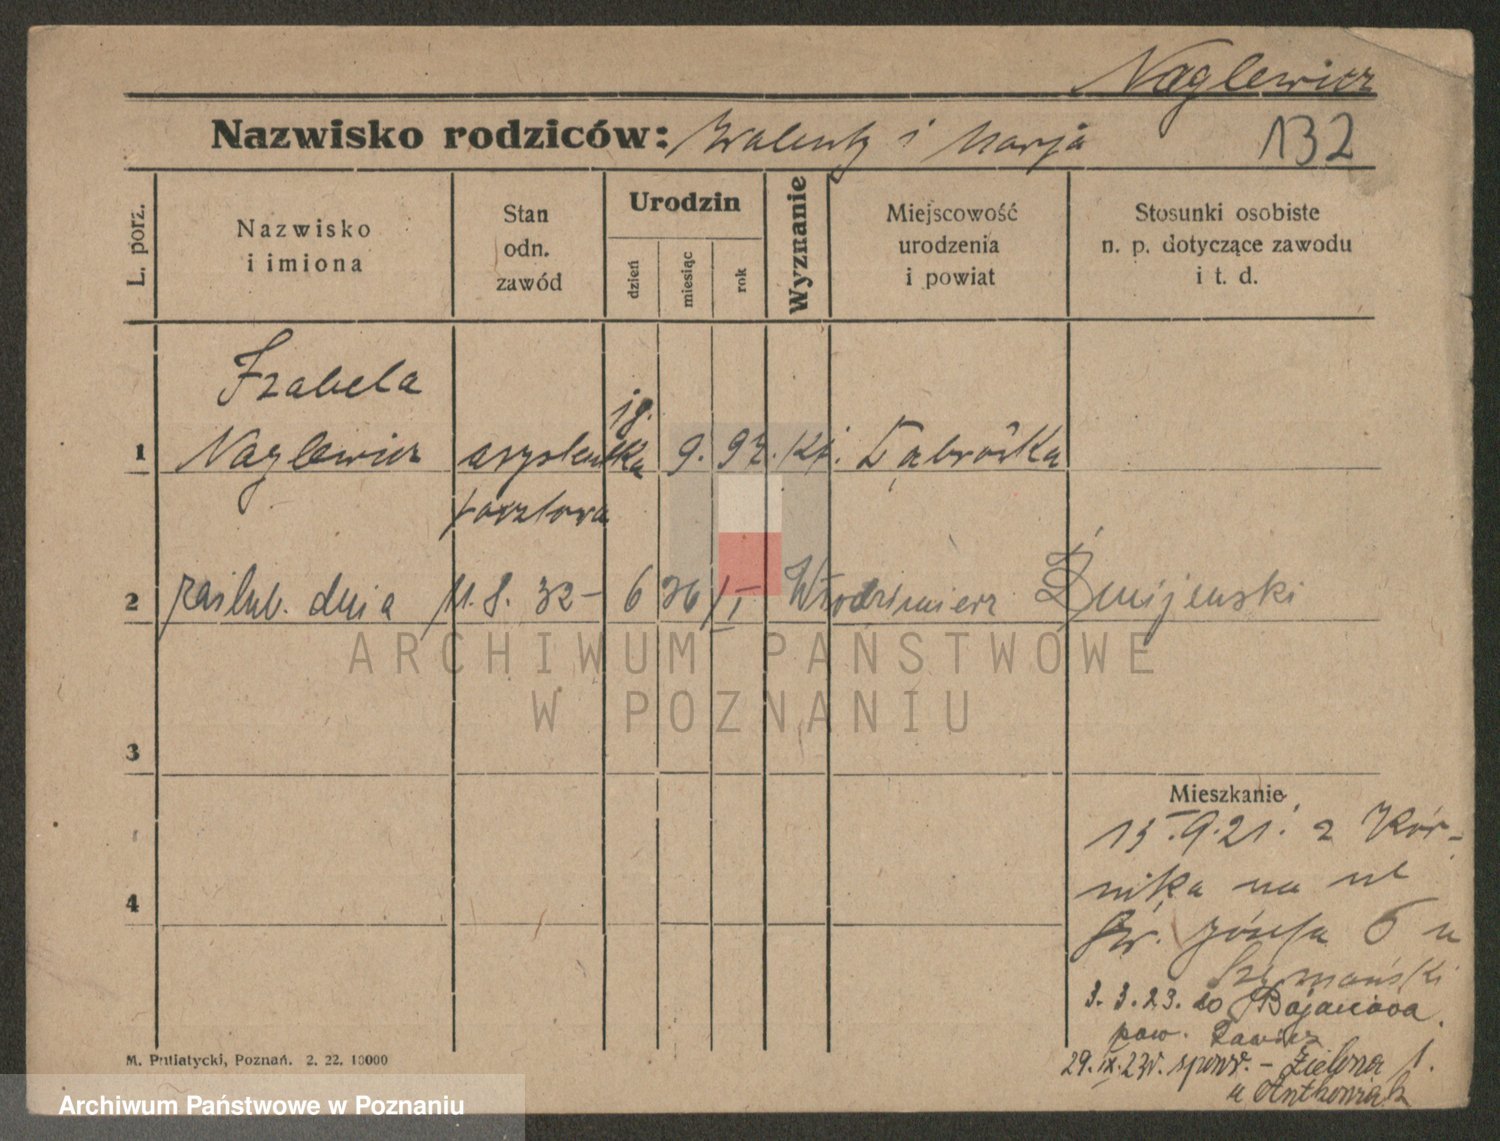 Naglewicz
Nazwisko rodziców: Walenty i Marja
132
L. porz.
Nazwisko
i imiona
Stan
odn.
zawód
Urodzin
dzień
miesiąc
rok
Wyznanie
Miejscowość
urodzenia
i powiat
Stosunki osobiste
n. p. dotyczące zawodu
i t. d.
Izabela
1 Naglewicz asystentka 19. 9. 97. kt. Dąbrówka
pocztowa
2 zaślub. dnia 11. 8. 32 – Włodzimierz Żmijewski
3
4
Mieszkanie
15.9.21. z Kór-
nika na ul
Św. Józefa 6 u
Szymański
3. 3. 23. do Bojanowa
pow. Rawicz
29. IX. 23r. spow. – Zielona 1.
u Antkowiak
M. Putiatycki, Poznań. 2. 22. 10000
ARCHIWUM PAŃSTWOWE
W POZNANIU
Archiwum Państwowe w Poznaniu